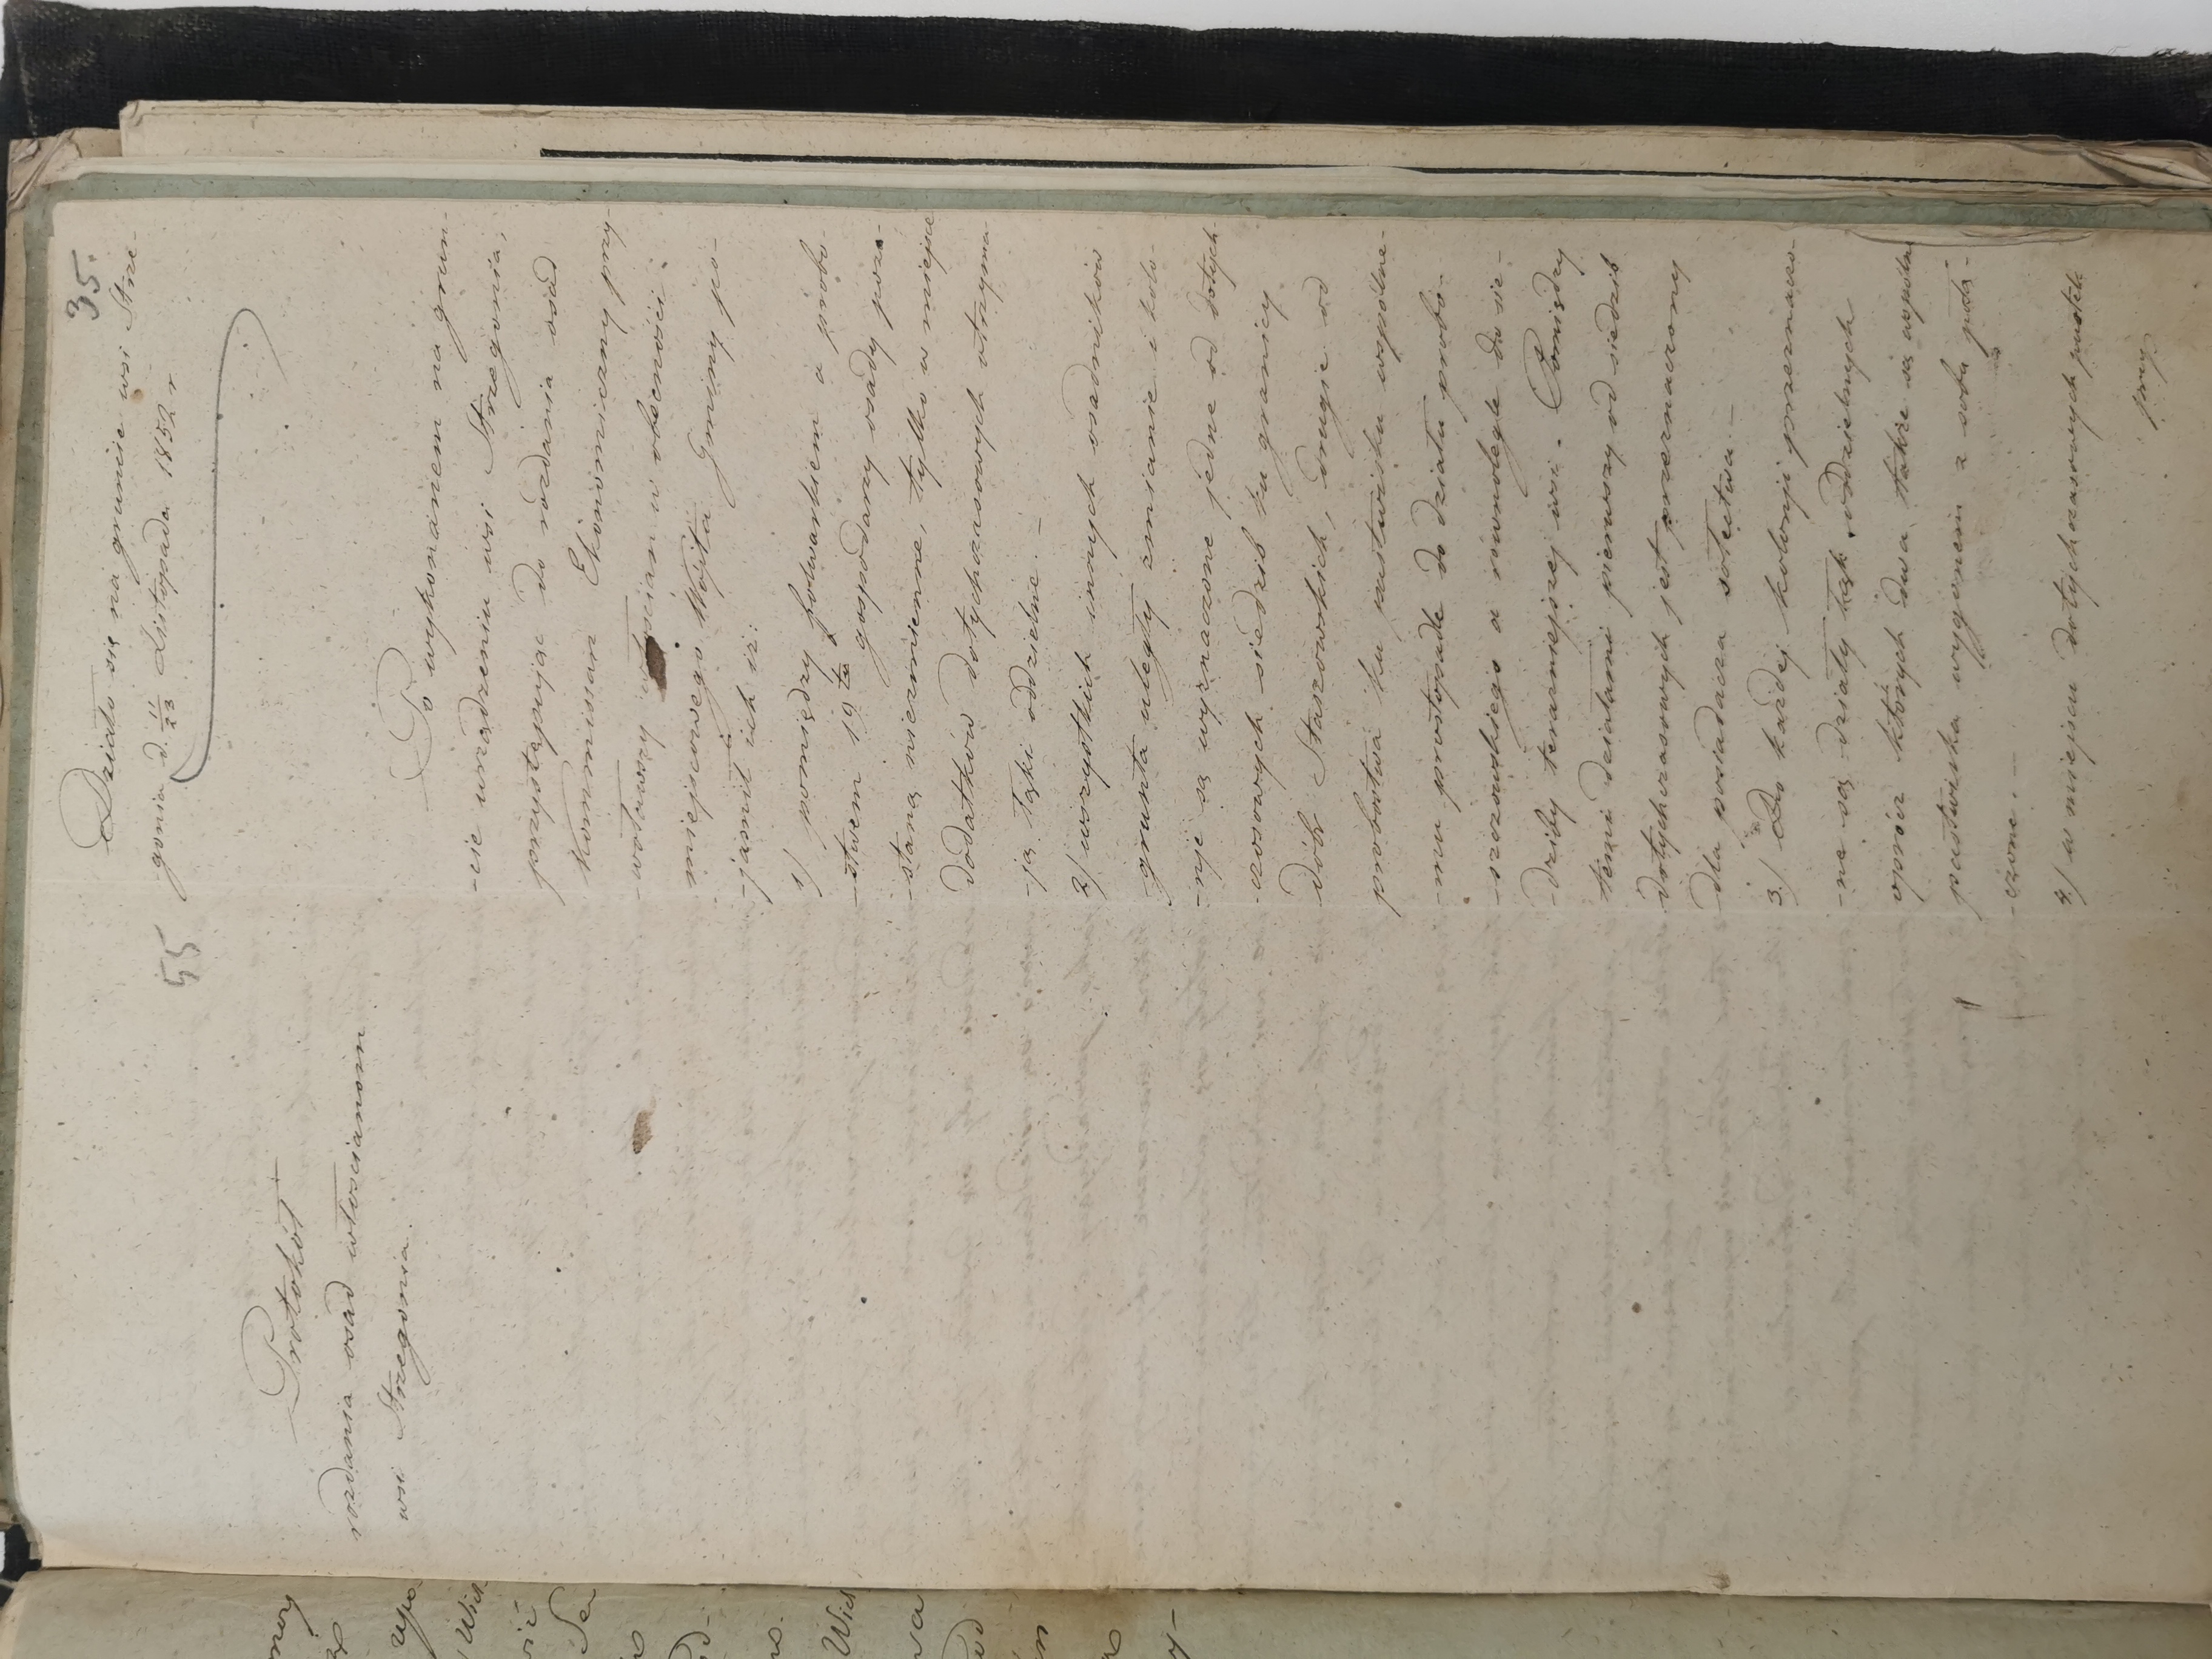 35.
Działo się na gruncie wsi Strze-
gonia d. 11/23 Listopada 1852 r.
55
Protokół
rozdania osad włościanom
wsi Strzegonia.
Po wykonanem na grun-
-cie urządzeniu wsi Strzegonia,
przystępując do rozdania osad
Kommissarz Ekonomiczny przy-
-woławszy włościan w obecności
miejscowego Wójta Gminy po-
-jaśnił ich iż:
1/ pomiędzy folwarkiem a probo-
-stwem 19ta gospodarzy osady pozo-
-staną niezmienne, tylko w miejsce
dodatków dotychczasowych otrzyma-
-ją łąki oddzielne. –
2/ wszystkich innych osadników
grunta uległy zmianie i kolo-
-nije są wyznaczone jedne od dotych-
-czasowych siedzib ku granicy
dóbr Staszowskich, drugie od
probostwa ku pastwisku wspólne-
-mu prostopadle do działu probo-
-szczowskiego a równolegle do sie-
-dziby teraźniejszej wsi. Pomiędzy
temi działami pierwszy od siedzib
dotychczasowych jest przeznaczony
dla posiadacza sołectwa. –
3/ Do każdej kolonji przeznaczo-
-ne są działy łąk oddzielnych
oprócz których dwa także są wspólne
pastwiska wygonem z sobą połą-
-czone. –
4/ w miejscu dotychczasowych pustek
przy